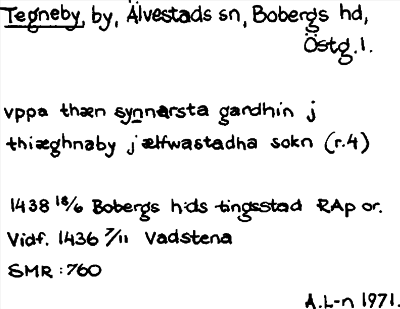 Tegneby, by, Älvestads sn, Bobergs hd,
Östg.l.
vppa thæn synnarsta gardhin j
thiæghnaby j ælfwastadha sokn (r.4)
1438 18/6 Bobergs h:ds tingsstad RAp or.
Vidf. 1436 7/11 Vadstena
SMR:760
A.L-n 1971.